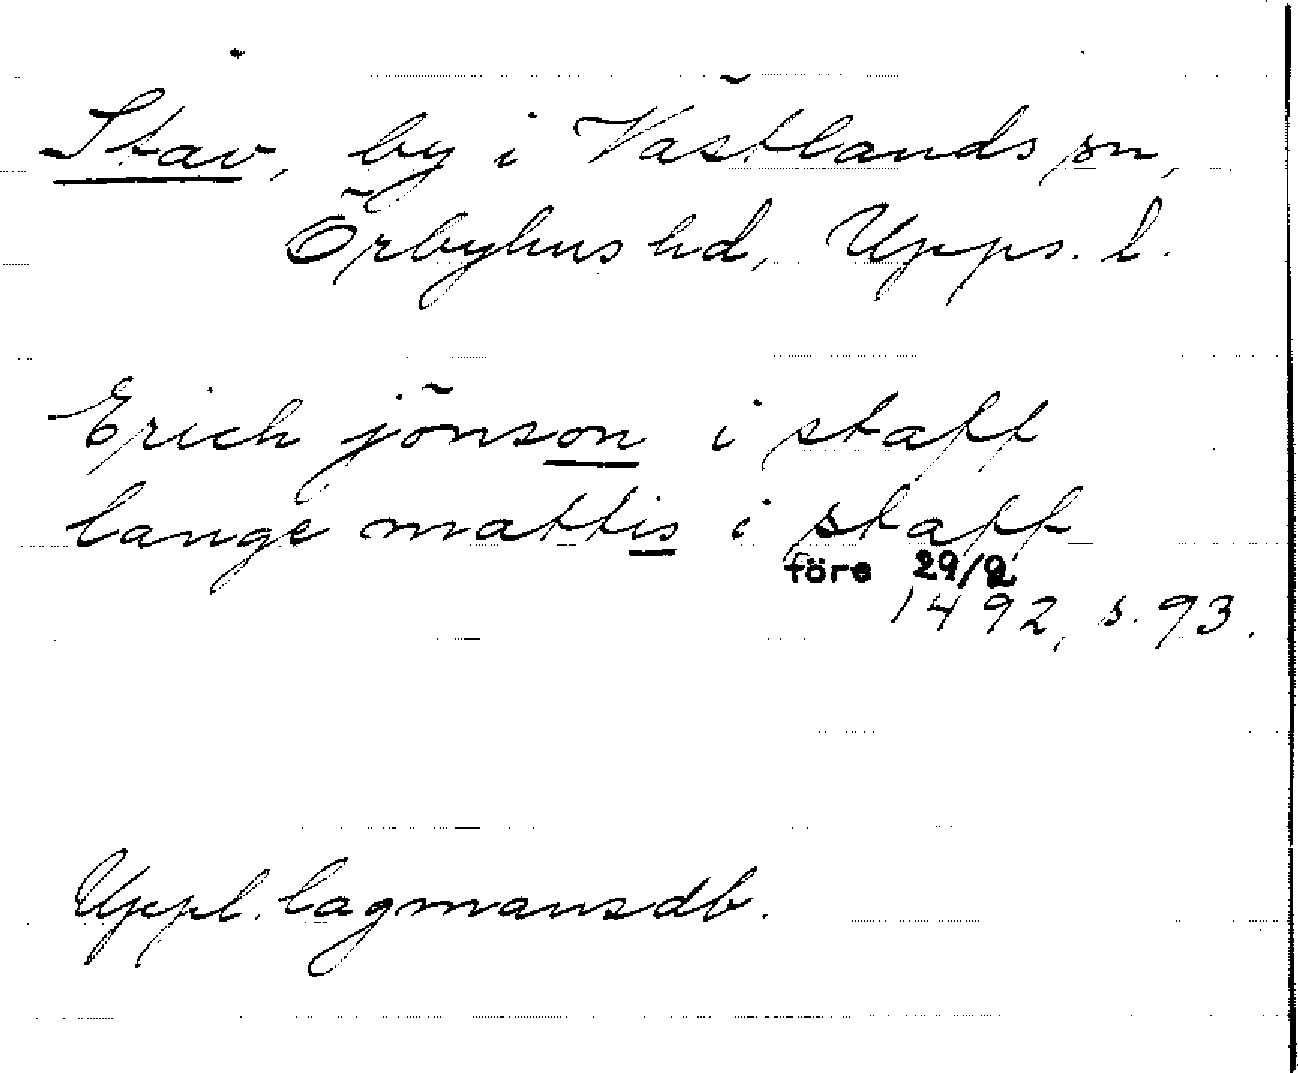 Stav, by i Västlands sn,
Örbyhus hd, Upps. l.
Erich jönson i staff
lange mattis i staff
före 29/2
1492, s. 93.
Uppl. lagmansdb.